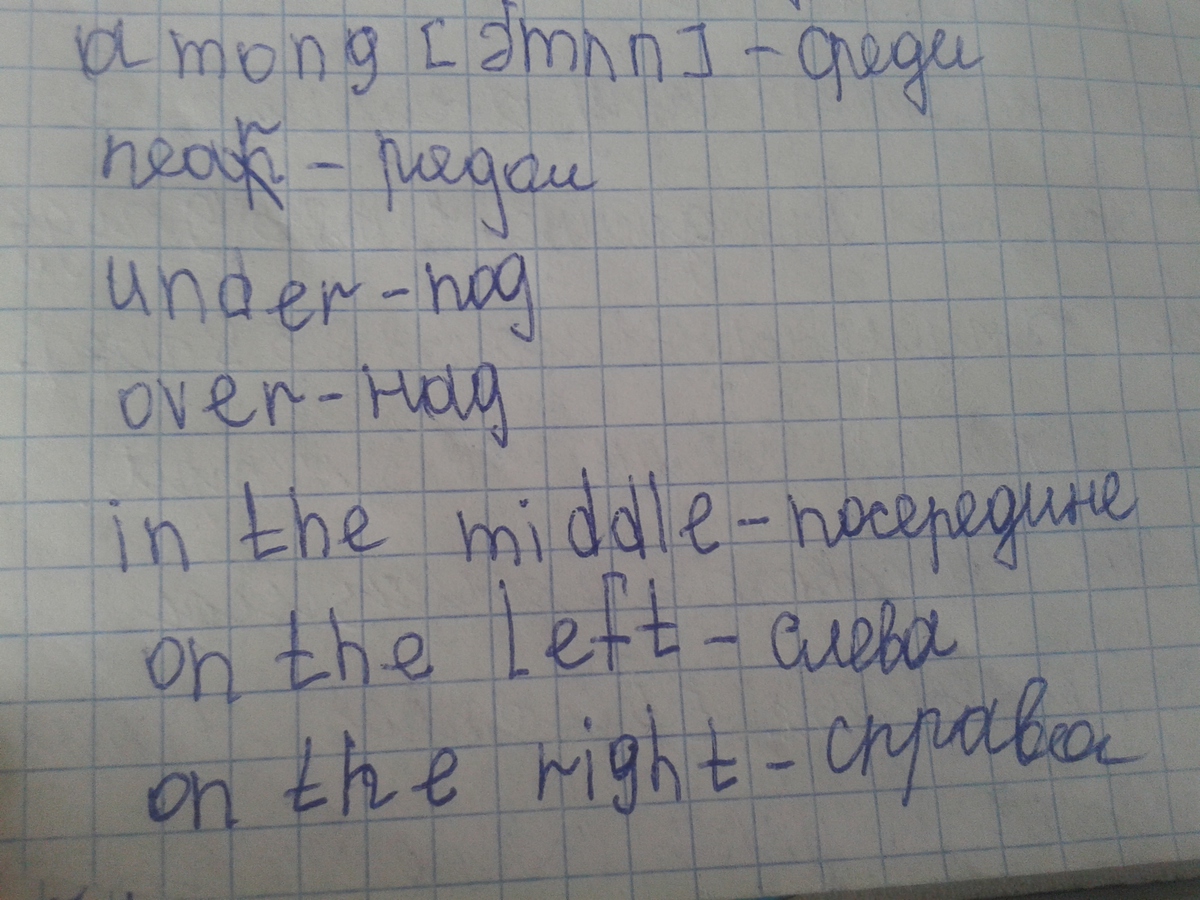 among [əmʌn] - среди
near - рядом
under - под
over - над
in the middle - посередине
on the left - слева
on the right - справа